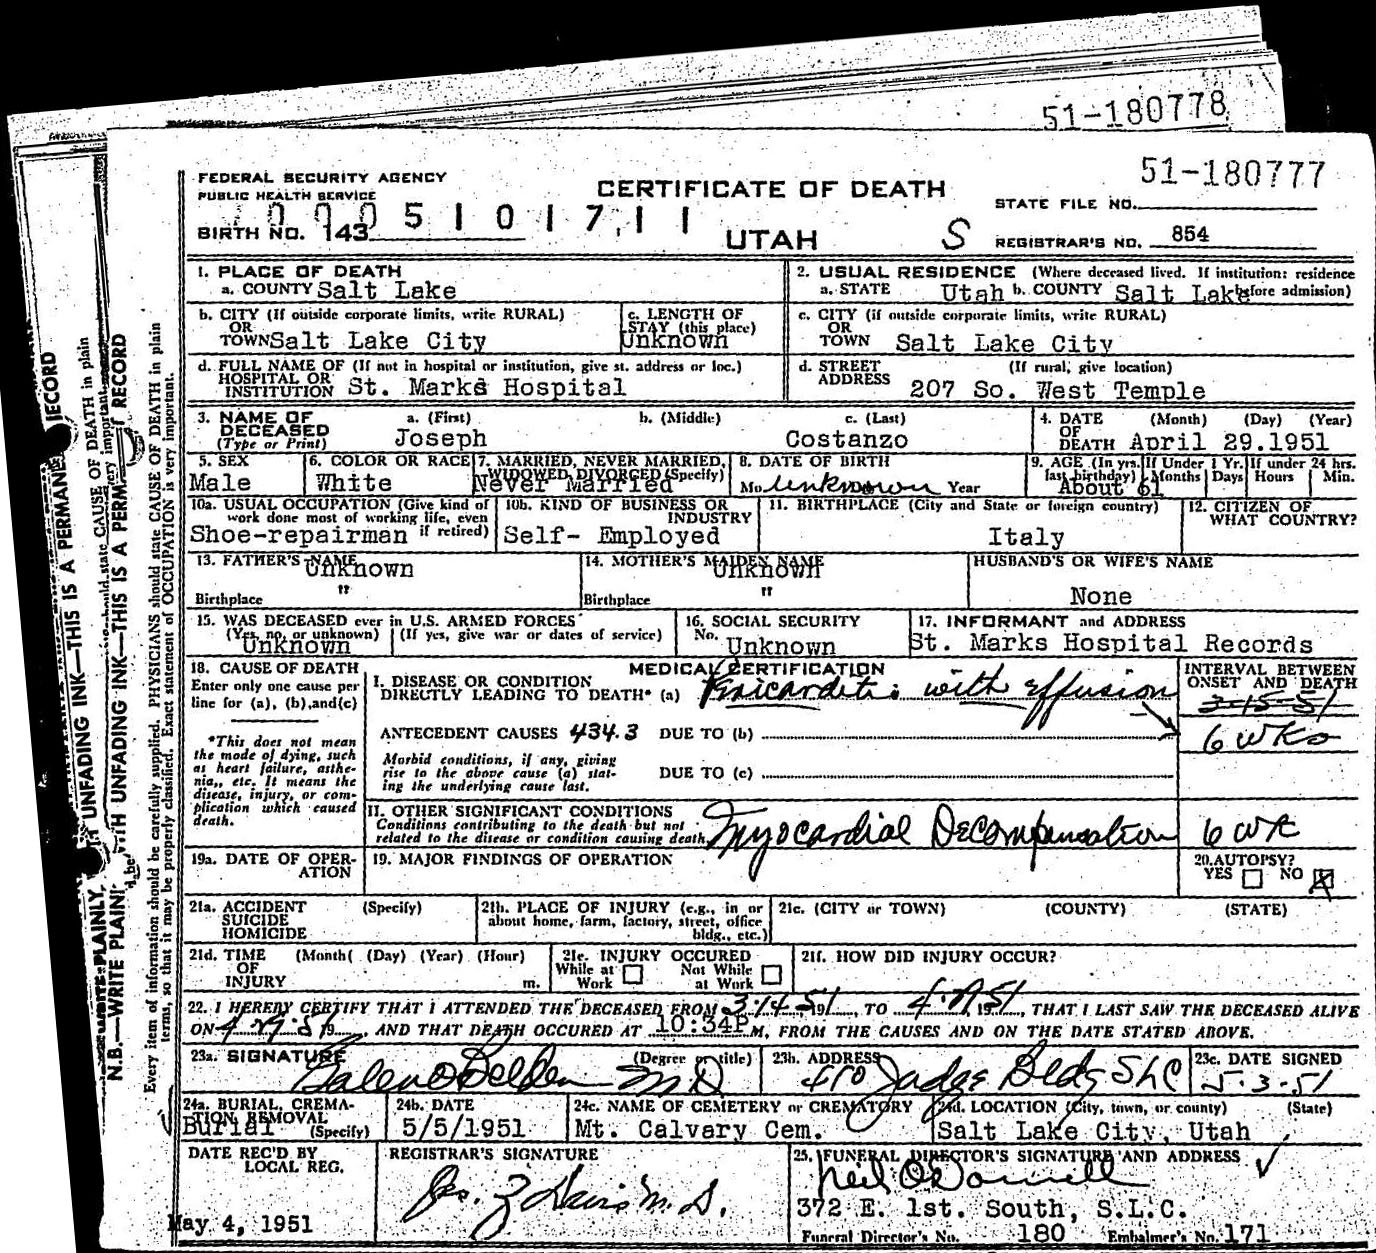 51-180778
51-180777
FEDERAL SECURITY AGENCY
PUBLIC HEALTH SERVICE
CERTIFICATE OF DEATH
STATE FILE NO.
BIRTH NO. 143
UTAH
S
REGISTRAR'S NO. 854
1. PLACE OF DEATH
a. COUNTY Salt Lake
2. USUAL RESIDENCE (Where deceased lived. If institution: residence before admission)
a. STATE Utah b. COUNTY Salt Lake
b. CITY (If outside corporate limits, write RURAL)
OR
TOWN Salt Lake City
c. LENGTH OF
STAY (this place)
Unknown
c. CITY (if outside corporate limits, write RURAL)
OR
TOWN Salt Lake City
d. FULL NAME OF (If not in hospital or institution, give st. address or loc.)
HOSPITAL OR
INSTITUTION St. Marks Hospital
d. STREET (If rural, give location)
ADDRESS 207 So. West Temple
3. NAME OF DECEASED
(Type or Print)
a. (First) b. (Middle) c. (Last)
Joseph Costanzo
4. DATE (Month) (Day) (Year)
OF
DEATH April 29.1951
5. SEX
Male
6. COLOR OR RACE
White
7. MARRIED, NEVER MARRIED,
WIDOWED, DIVORCED (Specify)
Never Married
8. DATE OF BIRTH
Mo. Unknown Year
9. AGE (In yrs. last birthday)
About 61
If Under 1 Yr. Months Days
If under 24 hrs. Hours Min.
10a. USUAL OCCUPATION (Give kind of
work done most of working life, even
if retired)
Shoe-repairman
10b. KIND OF BUSINESS OR
INDUSTRY
Self- Employed
11. BIRTHPLACE (City and State or foreign country)
Italy
12. CITIZEN OF
WHAT COUNTRY?
13. FATHER'S NAME
Unknown
Birthplace "
14. MOTHER'S MAIDEN NAME
Unknown
Birthplace "
HUSBAND'S OR WIFE'S NAME
None
15. WAS DECEASED ever in U.S. ARMED FORCES
(Yes, no, or unknown) (If yes, give war or dates of service)
Unknown
16. SOCIAL SECURITY
No. Unknown
17. INFORMANT and ADDRESS
St. Marks Hospital Records
18. CAUSE OF DEATH
Enter only one cause per
line for (a), (b), and (c)
*This does not mean
the mode of dying, such
as heart failure, asthe-
nia, etc. It means the
disease, injury, or com-
plication which caused
death.
MEDICAL CERTIFICATION
I. DISEASE OR CONDITION
DIRECTLY LEADING TO DEATH* (a) Pericarditis with effusion
ANTECEDENT CAUSES 434.3 DUE TO (b)
Morbid conditions, if any, giving
rise to the above cause (a) stat-
ing the underlying cause last.
DUE TO (c)
INTERVAL BETWEEN
ONSET AND DEATH
3-15-51
6 wks
II. OTHER SIGNIFICANT CONDITIONS
Conditions contributing to the death but not
related to the disease or condition causing death
Myocardial Decompensation
6 wk
19a. DATE OF OPER-
ATION
19. MAJOR FINDINGS OF OPERATION
20. AUTOPSY?
YES NO
21a. ACCIDENT (Specify)
SUICIDE
HOMICIDE
21b. PLACE OF INJURY (e.g., in or
about home, farm, factory, street, office
bldg., etc.)
21c. (CITY or TOWN) (COUNTY) (STATE)
21d. TIME (Month) (Day) (Year) (Hour)
OF
INJURY m.
21e. INJURY OCCURED
While at Work Not While at Work
21f. HOW DID INJURY OCCUR?
22. I HEREBY CERTIFY THAT I ATTENDED THE DECEASED FROM 3-14-51 19 TO 4-29-51, 19, THAT I LAST SAW THE DECEASED ALIVE
ON 4-29-51 19, AND THAT DEATH OCCURED AT 10:34P M, FROM THE CAUSES AND ON THE DATE STATED ABOVE.
23a. SIGNATURE (Degree or title)
Galen O Belden MD
23b. ADDRESS
410 Judge Bldg SLC
23c. DATE SIGNED
5-3-51
24a. BURIAL, CREMA-
TION, REMOVAL
(Specify)
Burial
24b. DATE
5/5/1951
24c. NAME OF CEMETERY or CREMATORY
Mt. Calvary Cem.
24d. LOCATION (City, town, or county) (State)
Salt Lake City, Utah
DATE REC'D BY
LOCAL REG.
May 4, 1951
REGISTRAR'S SIGNATURE
25. FUNERAL DIRECTOR'S SIGNATURE AND ADDRESS
Neil O'Donnell
372 E. 1st. South, S.L.C.
Funeral Director's No. 180 Embalmer's No. 171
N.B.—WRITE PLAINLY WITH UNFADING INK—THIS IS A PERMANENT RECORD
Every item of information should be carefully supplied. PHYSICIANS should state CAUSE OF DEATH in plain
terms, so that it may be properly classified. Exact statement of OCCUPATION is very important.